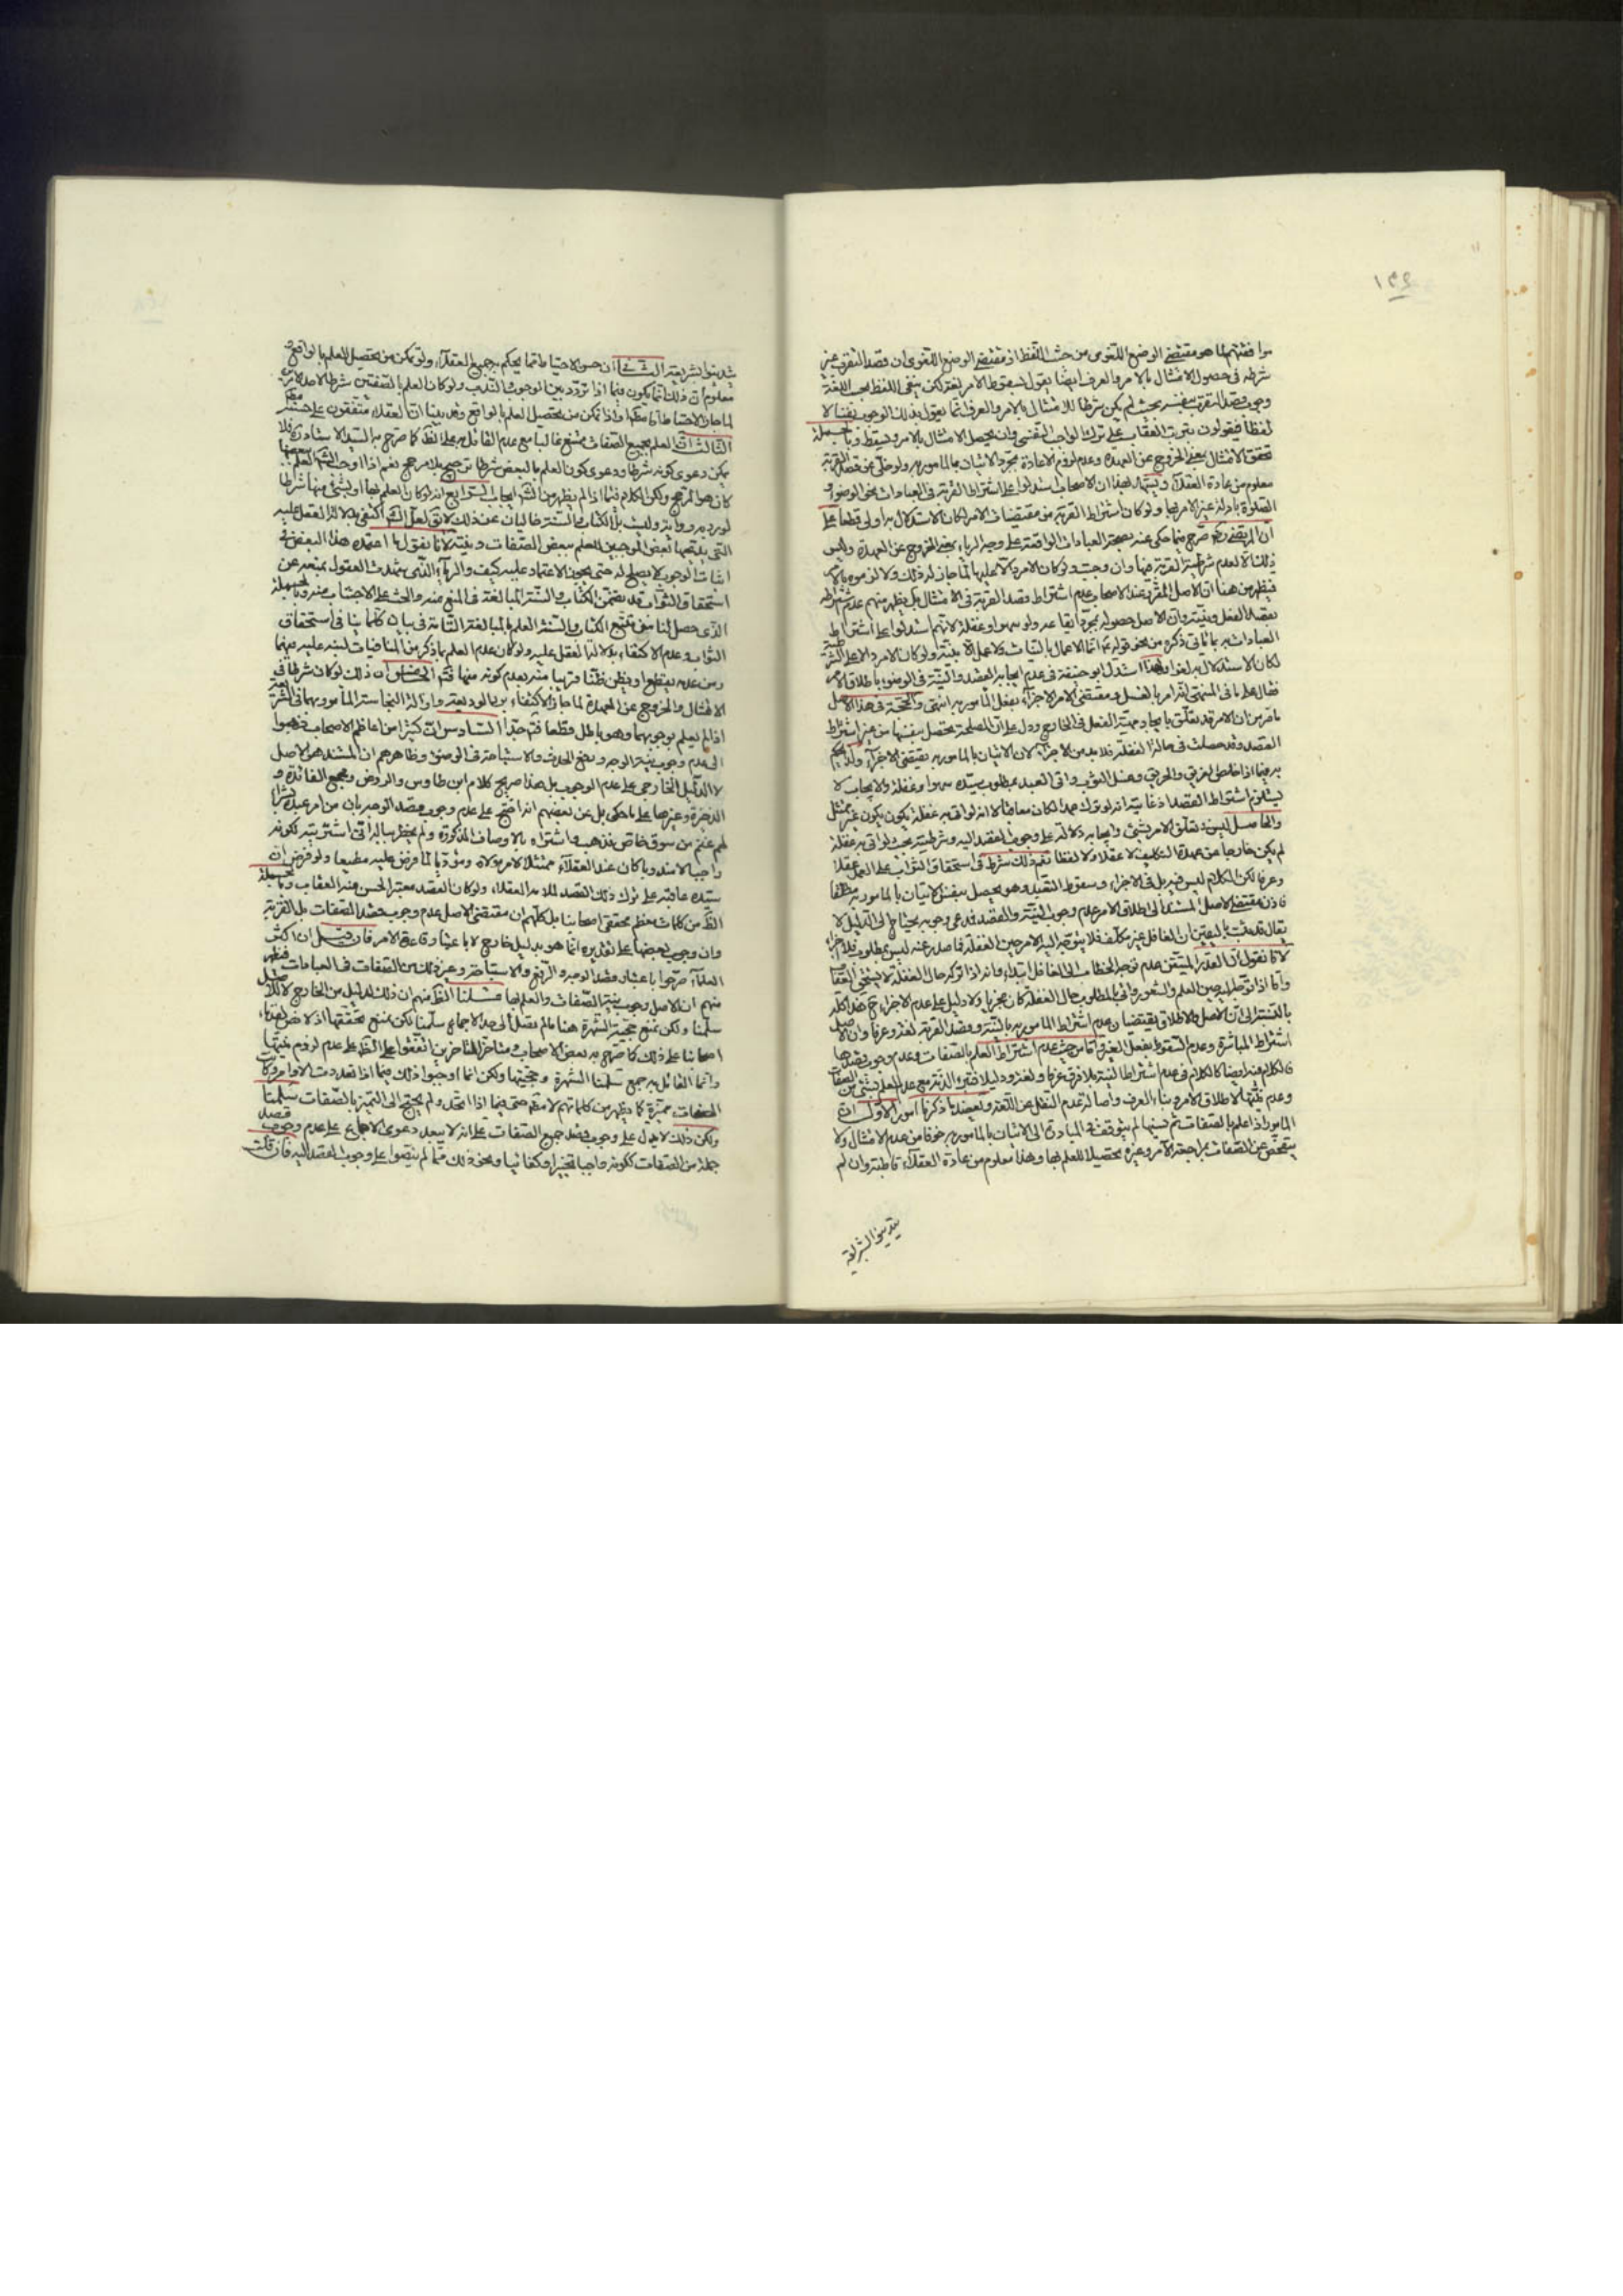 ١٣٤
موافقتهم لما هو مقتضى الوضع اللغوى من حيث اللفظ اذ مقتضى الوضع اللغوى ان قصد التقرب غير
شرط فى حصول الامتثال بالامر والعرف ايضا يقول بسقوط الامر بغيره لكن ينفى اللفظ بحسب اللغة
وجوب قصد التقرب بنفسه بحيث لم يكن شرطا للامتثال بالامر والعرف انما يقول بذلك الوجوب نفسا لا
لفظا فيقولون بترتب العقاب على ترك الواجب النفسى وان يحصل الامتثال بالامر ويسقط وبالجملة
تحقق الامتثال بمعنى الخروج عن العهدة وعدم لزوم الاعادة بمجرد الاتيان بالمامور به ولو خلى عن قصد القربة
معلوم من عادة العقلاء ويشهد لهذا ان الاصحاب استدلوا على اشتراط القربة فى العبادات نحو الوضوء و
الصلوة بادلة غير الامر بها ولو كان اشتراط القربة من مقتضيات الامر لكان الاستدلال به اولى قطعا على
ان المرتضى ره صرح فيما حكى عنه بصحة العبادات الواقعة على وجه الرياء بمعنى الخروج عن العهدة وليس
ذلك الا لعدم شرطية القربة فيها وان وجبت ولو كان الامر دالا عليها لما جاز له ذلك ولا لزموه بالامر
فيظهر من هنا ان الاصل المقرر عند الاصحاب عدم اشتراط قصد القربة فى الامتثال بل يظهر منهم عدم اشتراط
قصد الفعل ونيته وان الاصل حصوله بمجرد ايقاعه ولو سهوا وغفلة لانهم استدلوا على اشتراط
العبادات به بما ياتى ذكره من نحو قوله ع انما الاعمال بالنيات ولا عمل الا بنية ولو كان الامر دالا على الشرطية
لكان الاستدلال به لغوا ولهذا استدل ابو حنيفة فى عدم ايجابه القصد والنية فى الوضوء باطلاق الامر
فقال على ما فى المنتهى انه امر بالغسل ومقتضى الامر الاجزاء بفعل المامور به انتهى والحجة فى هذا الاصل
ما مر من ان الامر قد تعلق بايجاد مهية الفعل فى الخارج ودل على ان المصلحة تحصل بنفسها من غير اشتراط
القصد وقد حصلت فى حالة الغفلة فلا بد من الاجزاء لان الاتيان بالمامور به يقتضى الاجزاء ولذا يحكم
به فيما اذا خلص الغريق والحريق وغسل الثوب واتى العبد بمطلوب سيده سهوا وغفلة ولا يجاب لا
يستلزم اشتراط القصد اذ غايته انه لو ترك عمدا لكان معاقبا لا انه لو اتى به غفلة يكون غير ممتثل
والحاصل ليس فى تعلق الامر بشئ وايجابه دلالة على وجوب القصد اليه وشرطيته بحيث لو اتى به غفلة
لم يكن خارجا عن عهدة التكليف لا عقلا ولا لفظا نعم ذلك شرط فى استحقاق الثواب على العمل عقلا
وعرفا لكن الكلام ليس فيه بل فى الاجزاء وسقوط التعبد وهو يحصل بنفس الاتيان بالمامور به مطلقا
فاذن مقتضى الاصل المستند الى اطلاق الامر عدم وجوب النية والقصد فمدعى وجوبه يحتاج الى الدليل لا
يقال قد ثبت باليقين ان الغافل غير مكلف فلا يتوجه اليه الامر حين الغفلة فما صدر عنه ليس بمطلوب فلا اجزاء
لانا نقول ان القدر المتيقن عدم توجه الخطاب الى الغافل ابتداء وانه اذا تركه حال الغفلة لا يستحق العقاب
واما اذا توجه اليه حين العلم والشعور واتى بالمطلوب حال الغفلة كان مجزيا ولا دليل على عدم الاجزاء ح هذا كله
بالنسبة الى ان الاصل والاطلاق يقتضيان عدم اشتراط المامور به بالنية وقصد القربة لغة وعرفا وان الاصل
اشتراط المباشرة وعدم السقوط بفعل الغير واما من حيث عدم اشتراط العلم بالصفات وعدم وجوب قصدها
فالكلام فيه ايضا كالكلام فى عدم اشتراط النية بلا فرق عرفا ولغة ودليلا فتبرء الذمة مع عدم العلم بشئ من الصفات
وعدم نيتها لاطلاق الامر وبناء العرف واصالة عدم النقل عن اللغة ويعضد ما ذكرنا امور الاول ان
المامور اذا علم بالصفات ثم نسيها لم يتوقف فى المبادرة الى الاتيان بالمامور به خوفا من عدم الامتثال ولا
يتفحص عن الصفات بمراجعة الامر وغيره تحصيلا للعلم بها وهذا معلوم من عادة العقلاء قاطبة وان لم
يتدينوا الشريعة
يتدينوا بشريعة الثانى ان حسن الاحتياط مما يحكم به جميع العقلاء ولو تمكن من تحصيل العلم بالواقع و
معلوم ان ذلك انما يكون فيما اذا تردد بين الوجوب والندب ولو كان العلم بالصفتين شرطا لاحد الامرين
لما جاز الاحتياط مطلقا واذا تمكن من تحصيل العلم بالواقع وقد بينا ان العقلاء متفقون على حسنه
الثالث ان العلم بجميع الصفات ممتنع غالبا مع عدم القائل به على الظ كما صرح به السيد الاستاد ره فلا
يمكن دعوى كونه شرطا ودعوى كون العلم بالبعض شرطا ترجيح بلا مرجح نعم اذا اوجب الشرع العلم ببعضها
كان هو المرجح ولكن الكلام فيما اذا لم يظهر من الشرع ايجاب الرابع انه لو كان العلم بها او بشئ منها شرطا
لورد به رواية وليس بل الكتاب والسنة خاليان عن ذلك لا يق لعل الشرع اكتفى بدلالة العقل عليه
التى يدعيها بعض الموجبين للعلم ببعض الصفات ونيته لانا نقول ما اعتمده هذا البعض فى
اثبات الوجوب لا يصلح له حتى يجوز الاعتماد عليه كيف والرياء الذى يشهد العقول بمنعه عن
استحقاق الثواب قد تضمن الكتاب والسنة المبالغة فى المنع منه والحث على الاجتناب منه وبالجملة
الذى حصل لنا من تتبع الكتاب والسنة العلم بالمبالغة التامة فى بيان كلما ينافى استحقاق
الثواب وعدم الاكتفاء بدلالة العقل عليه ولو كان عدم العلم بما ذكر من المنافيات لنبه عليه فيهما
ومن عدمه يقطع او يظن ظنا قريبا منه بعدم كونه منها فتم الخامس ان ذلك لو كان شرطا فى
الامتثال والخروج عن العهدة لما جاز الاكتفاء برد الوديعة وازالة النجاسة المامور بهما فى الشريعة
اذا لم يعلم بوجوبهما وهو باطل قطعا فتم جدا السادس ان كثيرا من اعاظم الاصحاب ذهبوا
الى عدم وجوب نية الوجه ورفع الحدث والاستباحة فى الوضوء وظاهرهم ان المستند هو الاصل
لا الدليل الخارجى على عدم الوجوب بل هذا صريح كلام ابن طاوس والروض ومجمع الفائدة و
الذخيرة وغيرها على ما حكى بل عن بعضهم انه احتج على عدم وجوب قصد الوجه بان من امر عبده بشراء
لحم غنم من سوق خاص فذهب واشتراه بالاوصاف المذكورة ولم يخطر بباله انى اشتريته لكونه
واجبا او مندوبا كان عند العقلاء ممتثلا لامر مولاه ومؤديا لما فرض عليه مطيعا ولو فرض ان
سيده عاقبه على ترك ذلك القصد للامه العقلاء ولو كان القصد معتبرا لحسن منه العقاب وبالجملة
الظ من كلمات معظم محققى اصحابنا بل كلهم ان مقتضى الاصل عدم وجوب قصد الصفات بل القربة
وان وجوب بعضها على تقديره انما هو بدليل خارج لا باعتبار قاعدة الامر فان قيل ان اكثر
العلماء صرحوا باعتبار قصد الوجه والرفع والاستباحة وغير ذلك من الصفات فى العبادات فيظهر
منهم ان الاصل وجوب نية الصفات والعلم بها قلنا الظ منهم ان ذلك لدليل من الخارج لا للاصل
سلمنا ولكن نمنع حجية الشهرة هنا ما لم تصل الى حد الاجماع سلمنا لكن نمنع تحققها اذ لا نص لقدماء
اصحابنا على ذلك كما صرح به بعض الاصحاب ومتاخر المتاخرين اتفقوا على الظ على عدم لزوم نيتها
وانما القائل به جمع سلمنا الشهرة وحجيتها ولكن انما اوجبوا ذلك فيما اذا تعددت الاوامر وكانت
الصفات مميزة كما يظهر من كلماتهم لا مطلقا حتى فيما اذا اتحد ولم يحتج الى التميز بالصفات سلمنا
ولكن ذلك لا يدل على وجوب قصد جميع الصفات على انه لا يبعد دعوى الاجماع على عدم وجوب قصد
جملة من الصفات ككونه واجبا تخييرا وكفائيا ونحو ذلك مما لم ينصوا على وجوب القصد اليه فان قلت